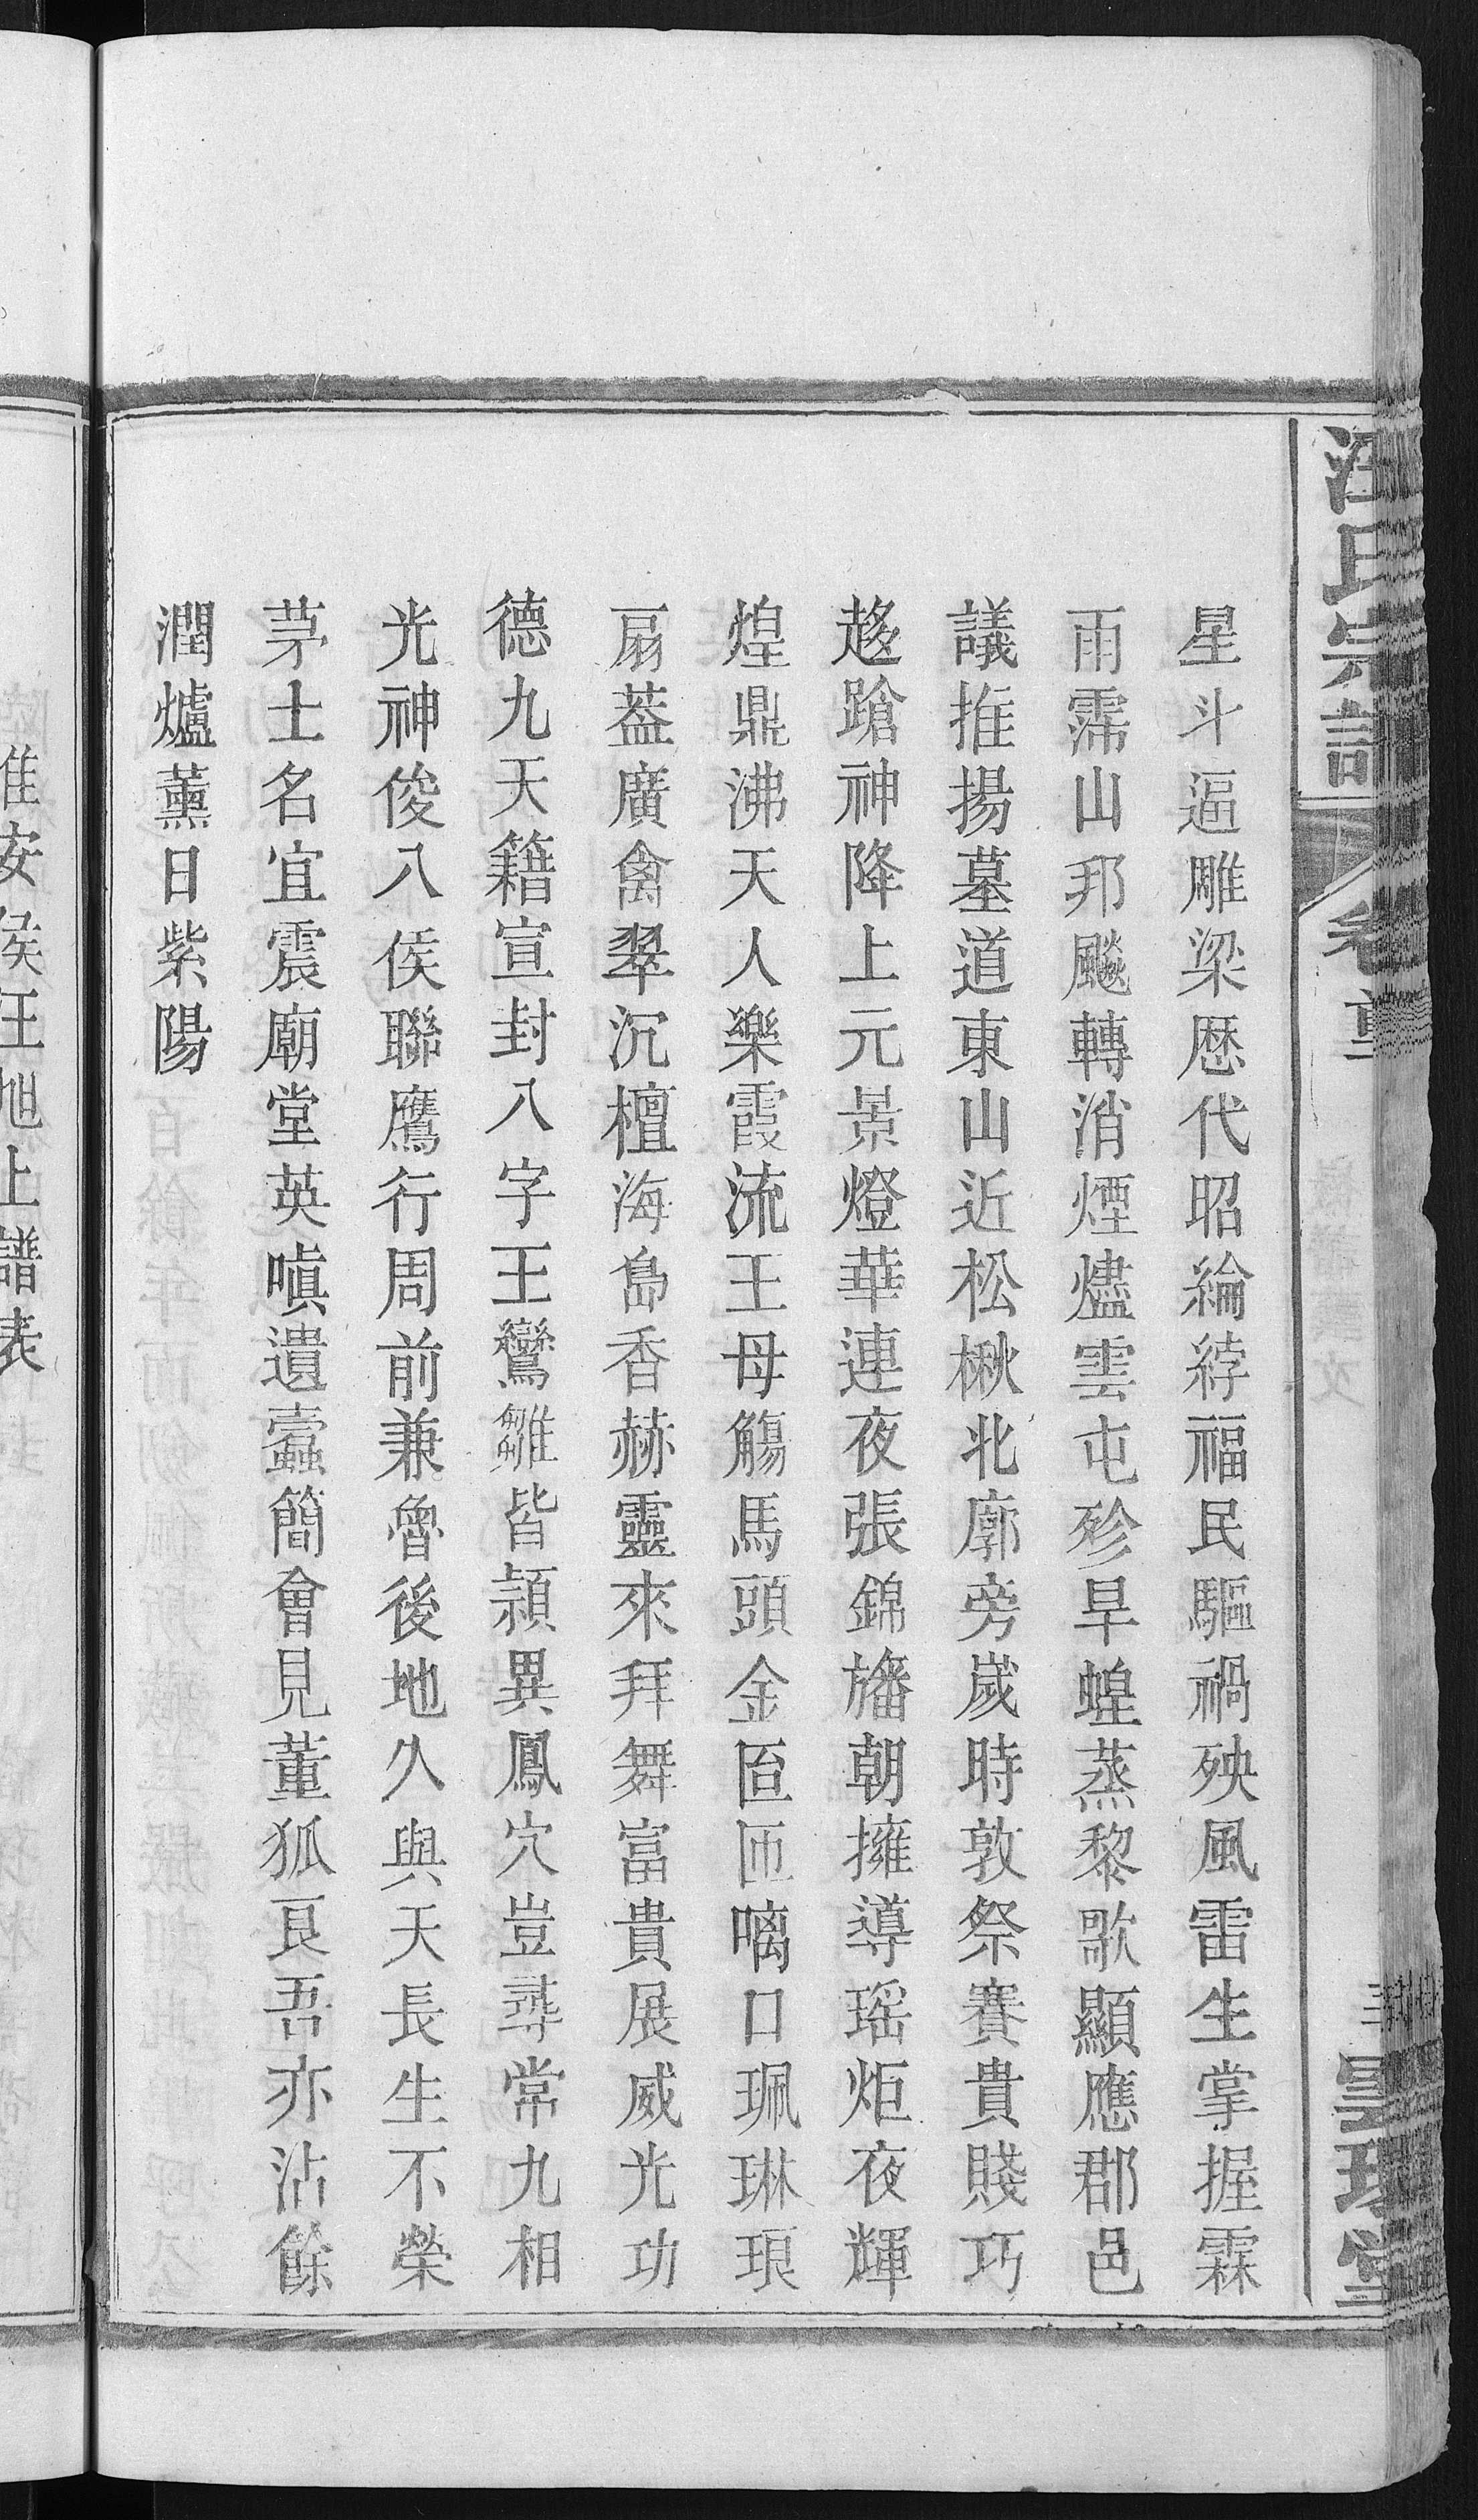 汪氏宗譜
星斗逼雕梁歴代昭綸綍福民驅禍殃風雷生掌握霖
雨霈山邦飈轉消煙燼雲屯殄旱蝗蒸黎歌顯應郡邑
議推揚墓道東山近松楸北廓旁嵗時敦祭賽貴賤巧
趍蹌神降上元景燈華連夜張錦旛朝擁導瑶炬夜輝
煌鼎沸天人樂霞流王母觴馬頭金匼匝嘀口珮琳琅
扇葢廣禽翠沉檀海島香赫靈來拜舞富貴展威光功
德九天籍宣封八字王鸞雛皆頴異鳳穴豈尋常九相
光神俊八侯聯鷹行周前兼魯後地久與天長生不榮
茅士名宜震廟堂英嗔遺蠹簡會見董狐良吾亦沾餘
潤爐薰日紫陽
淮安侯王旭上譜表